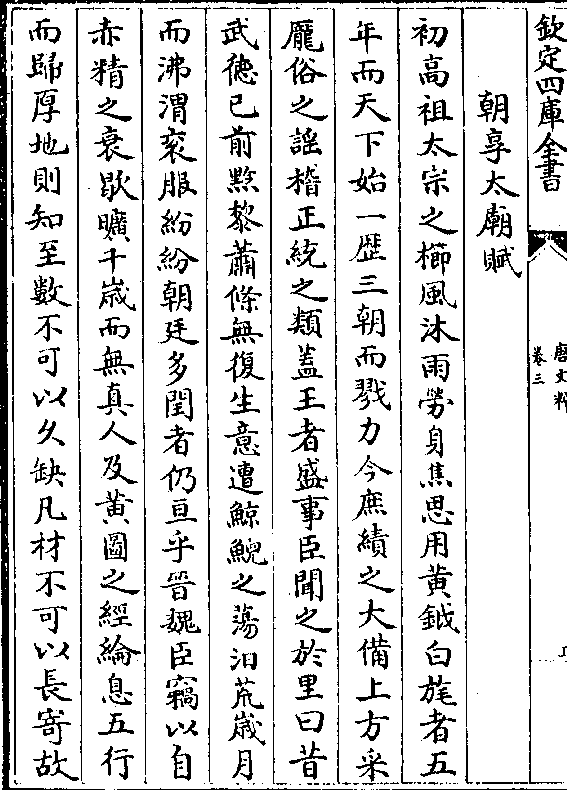 欽定四庫全書
唐文粹
卷三
朝享太廟賦
初高祖太宗之櫛風沐雨勞身焦思用黄鉞白旄者五
年而天下始一歴三朝而戮力今庶績之大備上方采
龎俗之謡稽正統之類蓋王者盛事臣聞之於里曰昔
武徳已前黔黎蕭條無復生意遭鯨鯢之蕩汨荒歳月
而沸渭衮服紛紛朝廷多閏者仍亘乎晉魏臣竊以自
赤精之衰歇曠千歳而無真人及黄圖之經綸息五行
而歸厚地則知至數不可以久缺凡材不可以長寄故